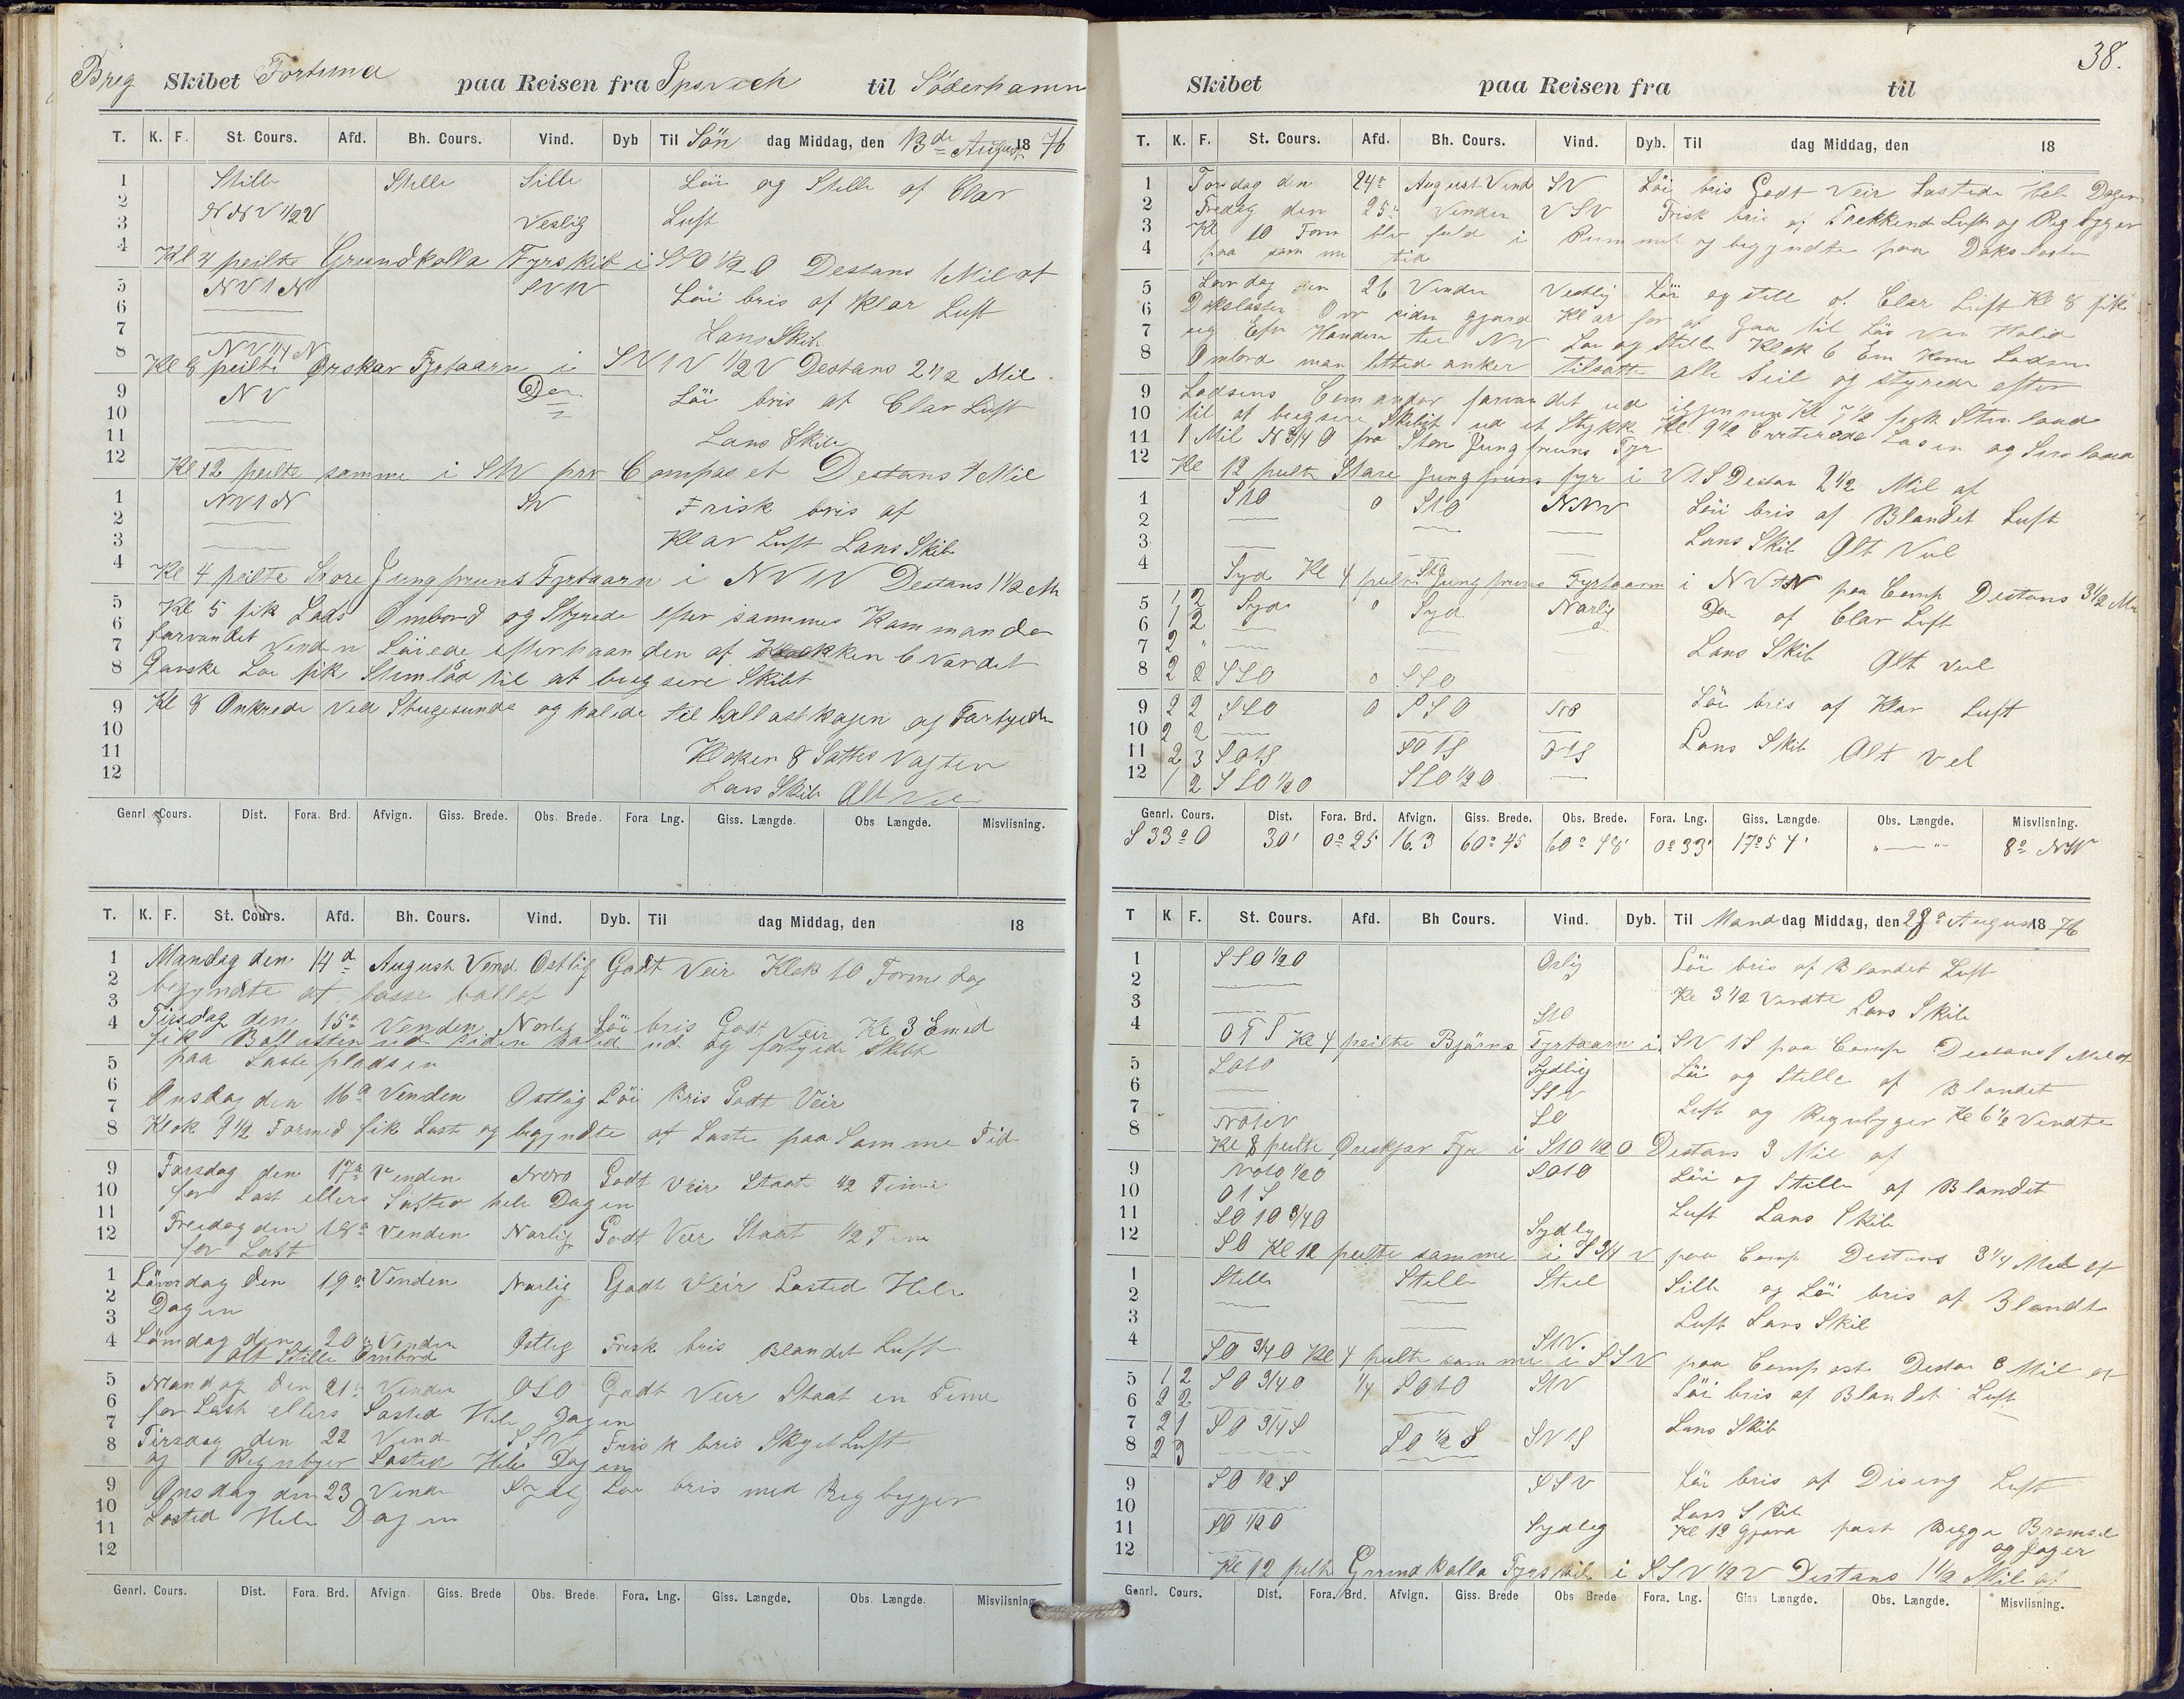 Breg Skibet Fortuna paa Reisen fra Ipsvich til Söderhamn
T. K. F. St. Cours. Afd. Bh. Cours. Vind. Dyb Til Sön dag Middag, den 13de August 1876
1 Stille Stille Stille Löi og Stille af Clar
2 NNV 1/2 V Luft
3 Vestlig
4 Kl 4 peilte Grundkalla Fyrskib i SSO 1/2 O Destans 1 Mil af
5 NV 1 N Löi bris af Klar Luft
6
7 Lans Skib
8 NV 1/4 N
Kl 8 peilte Ørskar Fyrtaarn i SV1V 1/2 V Destans 2 1/2 Mil
9 NV Do Löi bris af Clar Luft
10
11 Lans Skib
12 Kl 12 peilte samme i prr Compas et Destans 4 Mil
1 NV 1 N Frisk bris af
2
3 Klar Luft Lans Skib
4 Kl 4 peilte Store Jungfruns Fyrtaarn i NV1V Destans 1 1/2 M
5 Kl 5 fik Lods Ombord og Styrede efter sammes Kommando
6 farvandet Venden Löiede efterhaanden af Klokken 6 Vardet
7
8 Ganske Löi fik Stimlåd til at bugsere Skibet
9 Kl 8 Ankrede Ved Stugesunds og halede til ballastkajen og Fartyede
10
11 Kloken 8 Sattes Vagten
12 Lans Skib Alt Vel
Genrl Cours. Dist. Fora. Brd. Afvign. Giss. Brede. Obs. Brede. Fora Lng. Giss. Længde. Obs. Længde. Misviisning.
T. K. F. St. Cours. Afd. Bh. Cours. Vind. Dyb. Til dag Middag, den 18
1 Mandag den 14d August Vend Ostlig Godt Veir Klok 10 Formedag
2 begyndte at losse ballast
3 Tirsdag den 15d Venden Norlig Löi bris Godt Veir Kl 3 Emed
4 fik Ballasten ud siden halede ud og fortyede Skibt
5 paa Lastepladsen
6
7 Onsdag den 16d Venden Ostlig Löi Bris Godt Veir
8 Klok 9 1/2 Formed fik Last og begyndte at Laste paa Samme Tid
9 Torsdag den 17d Venden Godt Veir Staat 1/2 Time
10 for Last ellers Lasted hele Dagen
11
12 Freidag den 18d Venden Norlig Godt Veir Staat 1/2 Time
for Last
1 Löverdag den 19d Venden Norlig Godt Veir Lasted Hele
2 Dagen
3
4 Söndag den 20d Venden Ostlig Frisk bris Blandet Luft
Alt Stille Ombord
5 Mandag den 21d Venden OSO Godt Veir Staat en Time
6 for Last ellers Lasted Hele Dagen
7
8 Tirsdag den 22 Vend SSV Frisk bris Skyet Luft
og Regnbyer Lasted Hele Dagen
9 Onsdag den 23 Vende Sydlig Löi bris med Regbyger
10 Lasted Hele Dagen
11
12
Genrl. Cours. Dist. Fora. Brd. Afvign. Giss. Brede Obs. Brede. Fora. Lng. Giss. Længde. Obs. Længde. Misviisning
38.
Skibet paa Reisen fra til
T. K. F. St. Cours. Afd. Bh. Cours. Vind. Dyb. Til dag Middag, den 18
1 Torsdag den 24d August Vend SV Löi bris Godt Veir Lastede hele Dagen
2 Fredag den 25d Venden VSV Frisk bris af Trekkende Luft og Regbyger
3 Kl 10 Form blev fuld i Rummet og begyndte paa Dekslasten
4 paa samme tid
5 Lördag den 26 Venden Vestlig Löi og stille af Clar Luft Kl 8 fik
6 Dekslasten Over siden gjord Klar for at Gaa til Söis Ven Halede
7 sig Efter Handen til NV Löi og Stille Klok 6 Em Kom Lodsen
8 Ombord man lettede anker tilsatte alle Seil og styrede efter
9 Lodsens Comandor farvandet ud igjennem Kl 7 1/2 fick Stimlaad
10 til at bugsere Skibet ud et Stykke Kl 9 1/2 Losen og
11 1 Mil N 3/4 O fra Store Jungfruns Fyr
12 Kl 12 peilte Store Jungfruns fyr i V1S Destan 2 1/2 Mil af
1 S1O 0 S1O NNV Löi bris af Blandet Luft
2
3 Lans Skib Alt Vel
4 Syd Kl 4 peilte Sto Jungfruns Fyrtaarn i NV1N paa Comp Destans 3 1/2 Mi
5 1 2 Syd 0 Syd Norlig Do af Clar Luft
6 1 2
7 2 " Lans Skib Alt vel
8 2 2 SSO 0 SSO
9 2 2 SSO 0 SSO Löi bris af Klar Luft
10 2 2
11 2 3 SO1S SO1S Lans Skib Alt vel
12 1 2 SSO 1/2 O SSO 1/2 O
Genrl. Cours. Dist. Fora. Brd. Afvign. Giss. Brede. Obs. Brede. Fora. Lng. Giss. Længde. Obs. Længde. Misviisning.
S 33° O 30' 0° 25 16.3 60° 45 60° 48' 0° 33' 17° 54' " — " 8° NW
T K F. St. Cours. Afd. Bh Cours. Vind. Dyb. Til Mandag Middag, den 28d August 1876
1 SSO 1/2 O Oslig Löi bris af Blandet Luft
2
3 Kl 3 1/2 Vendte Lans Skib
4 O1S Kl 4 peilte Björns Fyrtaarn i SV1S paa Comp Destans 1 Mil af
5 SO1O Sydlig Löi og Stille af Blandet
6 SSV
7 SO Luft og Regnbyger Kl 6 1/2 Vendte
8 Kl 8 peilte Øreskjar Fyr i S1O 1/2 O Destans 3 Mil af
9 1/2 O SO1O Löi og Stille af Blandet
10 O1S
11 SO1O 3/4 O Sydlig Luft Lans Skib
12 SO Kl 12 peilte samme i S 3/4 V paa Comp Destans 3 1/4 Mil af
1 Stille Stille Stille Stille og Löi bris af Blandt
2
3 Luft Lans Skib
4 SO 3/4 O Kl 4 peilte samme i SSV paa Compast Destan Mil af
5 1 2 SO 3/4 O 1/4 SO1O S1V Löi bris af Blandet Luft
6 2 2
7 2 1 SO 3/4 S Lans Skib
8 2 3 SO 1/2 S SV1S
9 SO 1/2 S SSV Löi bris af Diseng Luft
10 Lans Skib
11 SO 1/2 O Sydleg Kl 12 Gjorde fast Begge Bramseil
12 og Jager
Kl 12 peilte Grundkalla Fyrskib i SSV 1/2 V Distans 1 1/2 Mil af
Genrl. Cours. Dist. Fora. Brd. Afvign. Giss. Brede Obs Brede Fora. Lng. Giss Længde. Obs. Længde. Misviisning.